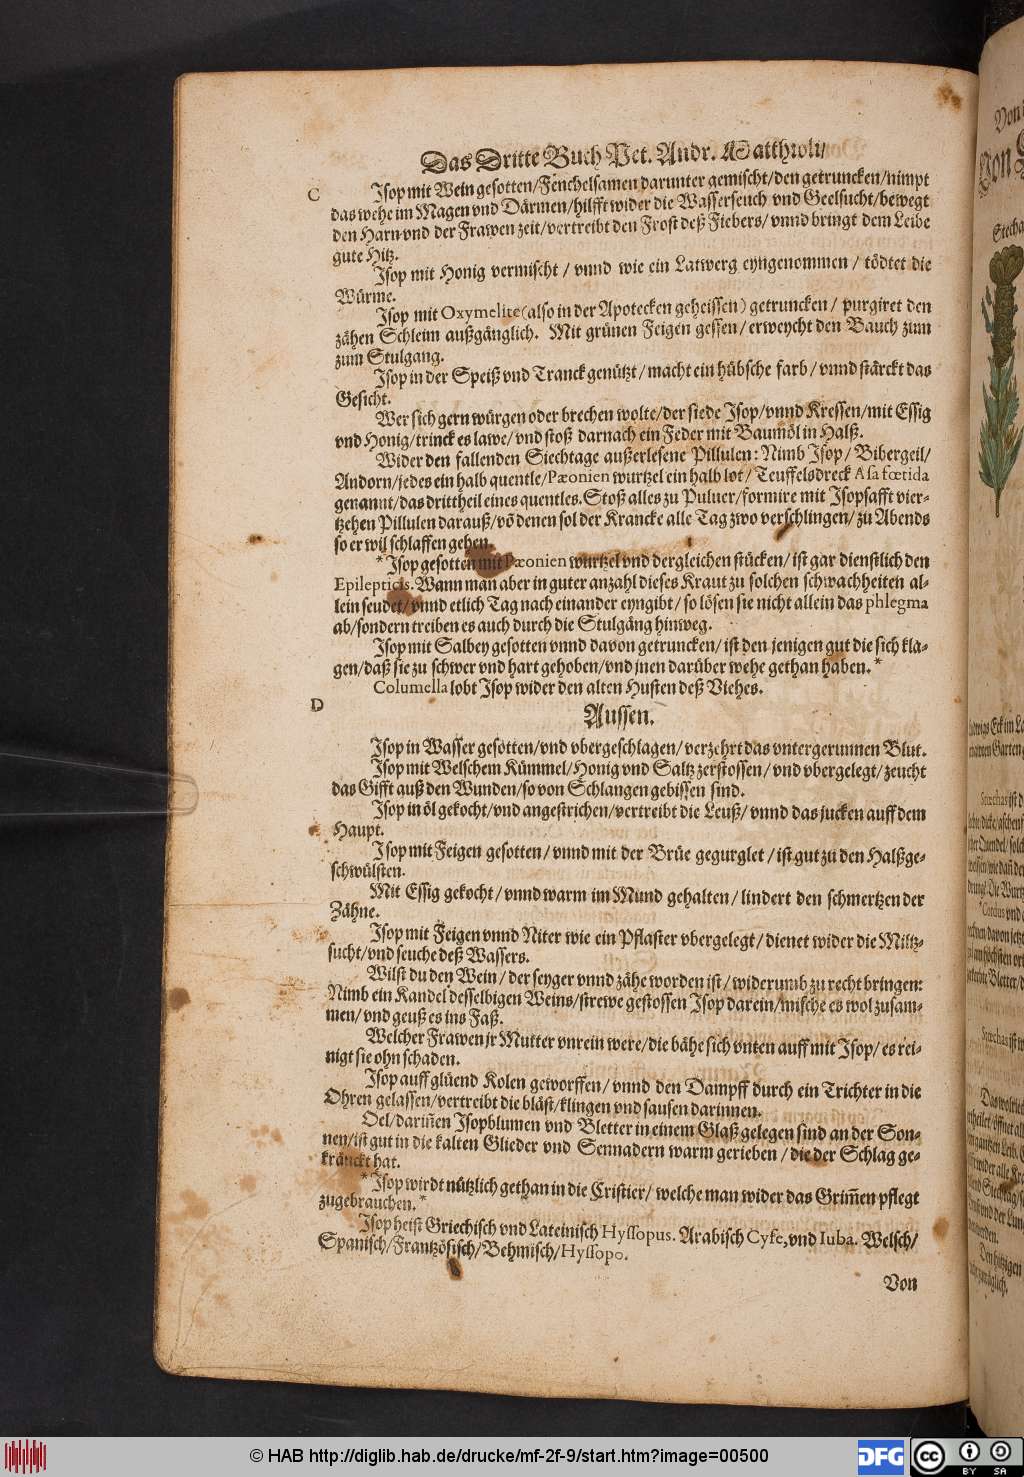 Das Dritte Buch Pet. Andr. Matthioli/
C
Isop mit Wein gesotten/Fenchelsamen darunter gemischt/den getruncken/nimpt
das wehe im Magen vnd Därmen/hilfft wider die Wasserseuch vnd Geelsucht/bewegt
den Harn vnd der Frawen zeit/vertreibt den Frost deß Fiebers/vnnd bringt dem Leibe
gute Hitz.
Isop mit Honig vermischt/vnnd wie ein Latwerg eyngenommen/tödtet die
Würme.
Isop mit Oxymelite(also in der Apotecken geheissen) getruncken/purgiret den
zähen Schleim außgänglich. Mit grünen Feigen gessen/erweycht den Bauch zum
zum Stulgang.
Isop in der Speiß vnd Tranck genützt/macht ein hübsche farb/vnnd stärckt das
Gesicht.
Wer sich gern würgen oder brechen wolte/der siede Isop/vnnd Kressen/mit Essig
vnd Honig/trinck es lawe/vnd stoß darnach ein Feder mit Baumöl in Halß.
Wider den fallenden Siechtage außerlesene Pillulen: Nimb Isop/Bibergeil/
Andorn/jedes ein halb quentle/Pæonien wurtzel ein halb lot/Teuffelsdreck Asa fœtida
genannt/das drittheil eines quentles. Stoß alles zu Puluer/formire mit Isopsafft vier-
tzehen Pillulen darauß/võ denen sol der Krancke alle Tag zwo verschlingen/zu Abends
so er wil schlaffen gehen.
* Isop gesotten mit Pæonien wurtzel vnd dergleichen stücken/ist gar dienstlich den
Epilepticis. Wann man aber in guter anzahl dieses Kraut zu solchen schwachheiten al-
lein seudet/vnnd etlich Tag nach einander eyngibt/so lösen sie nicht allein das phlegma
ab/sondern treiben es auch durch die Stulgäng hinweg.
Isop mit Salbey gesotten vnnd davon getruncken/ist den jenigen gut die sich kla-
gen/daß sie zu schwer vnd hart gehoben/vnd jnen darüber wehe gethan haben. *
Columella lobt Isop wider den alten Husten deß Viehes.
D
Aussen.
Isop in Wasser gesotten/vnd vbergeschlagen/verzehrt das vntergerunnen Blut.
Isop mit Welschem Kümmel/Honig vnd Saltz zerstossen/vnd vbergelegt/zeucht
das Gifft auß den Wunden/so von Schlangen gebissen sind.
Isop in öl gekocht/vnd angestrichen/vertreibt die Leuß/vnnd das jucken auff dem
Haupt.
Isop mit Feigen gesotten/vnnd mit der Brüe gegurglet/ist gut zu den Halßge-
schwülsten.
Mit Essig gekocht/vnnd warm im Mund gehalten/lindert den schmertzen der
Zähne.
Isop mit Feigen vnnd Niter wie ein Pflaster vbergelegt/dienet wider die Miltz-
sucht/vnd seuche deß Wassers.
Wilst du den Wein/der seyger vnnd zähe worden ist/widerumb zu recht bringen:
Nimb ein Kandel desselbigen Weins/strewe gestossen Isop darein/mische es wol zusam-
men/vnd geuß es ins Faß.
Welcher Frawen jr Mutter vnrein were/die bähe sich vnten auff mit Isop/es rei-
nigt sie ohn schaden.
Isop auff glüend Kolen geworffen/vnnd den Dampff durch ein Trichter in die
Ohren gelassen/vertreibt die bläst/klingen vnd sausen darinnen.
Oel/dariñen Isopblumen vnd Bletter in einem Glaß gelegen sind an der Son-
nen/ist gut in die kalten Glieder vnd Sennadern warm gerieben/die der Schlag ge-
kränckt hat.
* Isop wirdt nützlich gethan in die Cristier/welche man wider das Grim̃en pflegt
zugebrauchen. *
Isop heist Griechisch vnd Lateinisch Hyssopus. Arabisch Cyfe, vnd Iuba. Welsch/
Spanisch/Frantzösisch/Behmisch/Hyssopo.
Von
© HAB http://diglib.hab.de/drucke/mf-2f-9/start.htm?image=00500
DFG
cc BY SA